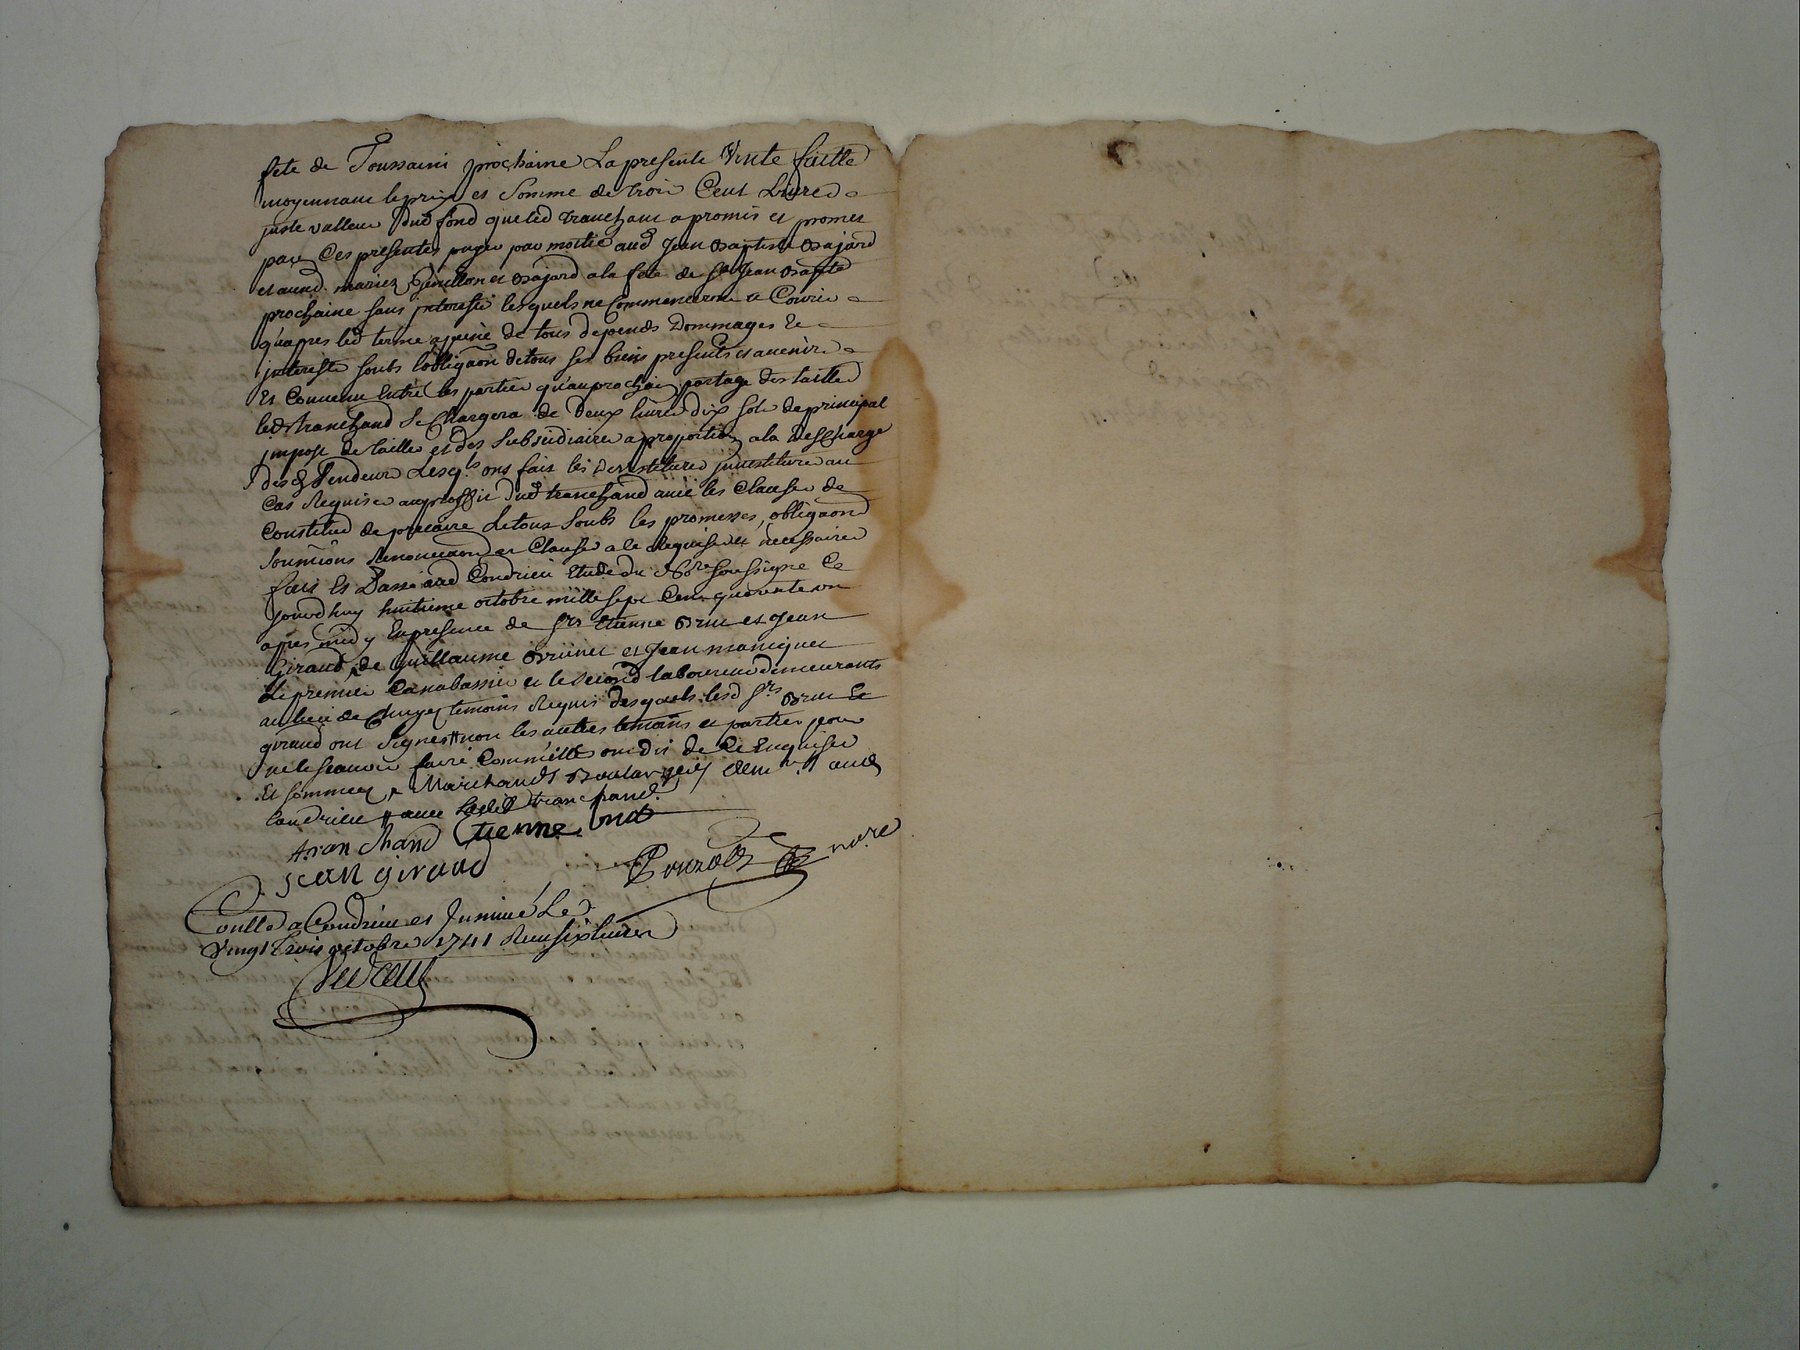 fete de Toussaint prochaine La presente Vente faitte
moyennant le prix et somme de trois Cent Livres
juste valleur dud fond que led tranchant a promis et promet
par Ces presentes payer par moitié aud Jean Baptiste Bajard
et aux d. mariez Genillon et Bajard a la fete de St Jean Baptte
prochaine sans interests lesquels ne Commenceront a Courir
qu'apres led terme a peine de tous depends Dommages Et
interests soubs l'obligaõn de tous ses biens presents et avenir
Et Convenu Entre les parties qu'au prochain partage des tailles
led tranchand Se Chargera de Deux livres dix sols de principal
impost de tailles et des Subsidiaires a proportion a la descharge
desd Vendeurs Lesqls ont fait les devestitures investitures au
Cas Requises au proffit dud tranchand avec les Clauses de
Constitud de precaire Le tout soubs les promesses, obligaõns
soumi͂ons Renonciaõns et Clauses a ce Requises et necessaires
fait Et Passé aud Condrieu Etude du Nore soussigné Ce
jourd'huy huitieme octobre mille sept Cent quarente un
apres midy En presence de Srs Etienne Brut et Jean
Giraud, de Guillaume Brunet et Jean maniquet
Le premier Canabassier et le second laboureur demeurants
au lieu de temoins Requis desquels lesd Srs Brut Et
giraud ont Signes non les autres temoins et parties pour
ne le scavoir faire Comm'elles ont dit de Ce Enquises
Et sommees Marchands Boulangers demts aud
Condrieu avec Ledit tranchand
tranchand Etienne brut
jean giraud
nore
Conllé a Condrieu et Insinué Le
Vingt trois octobre 1741 Receu six livres